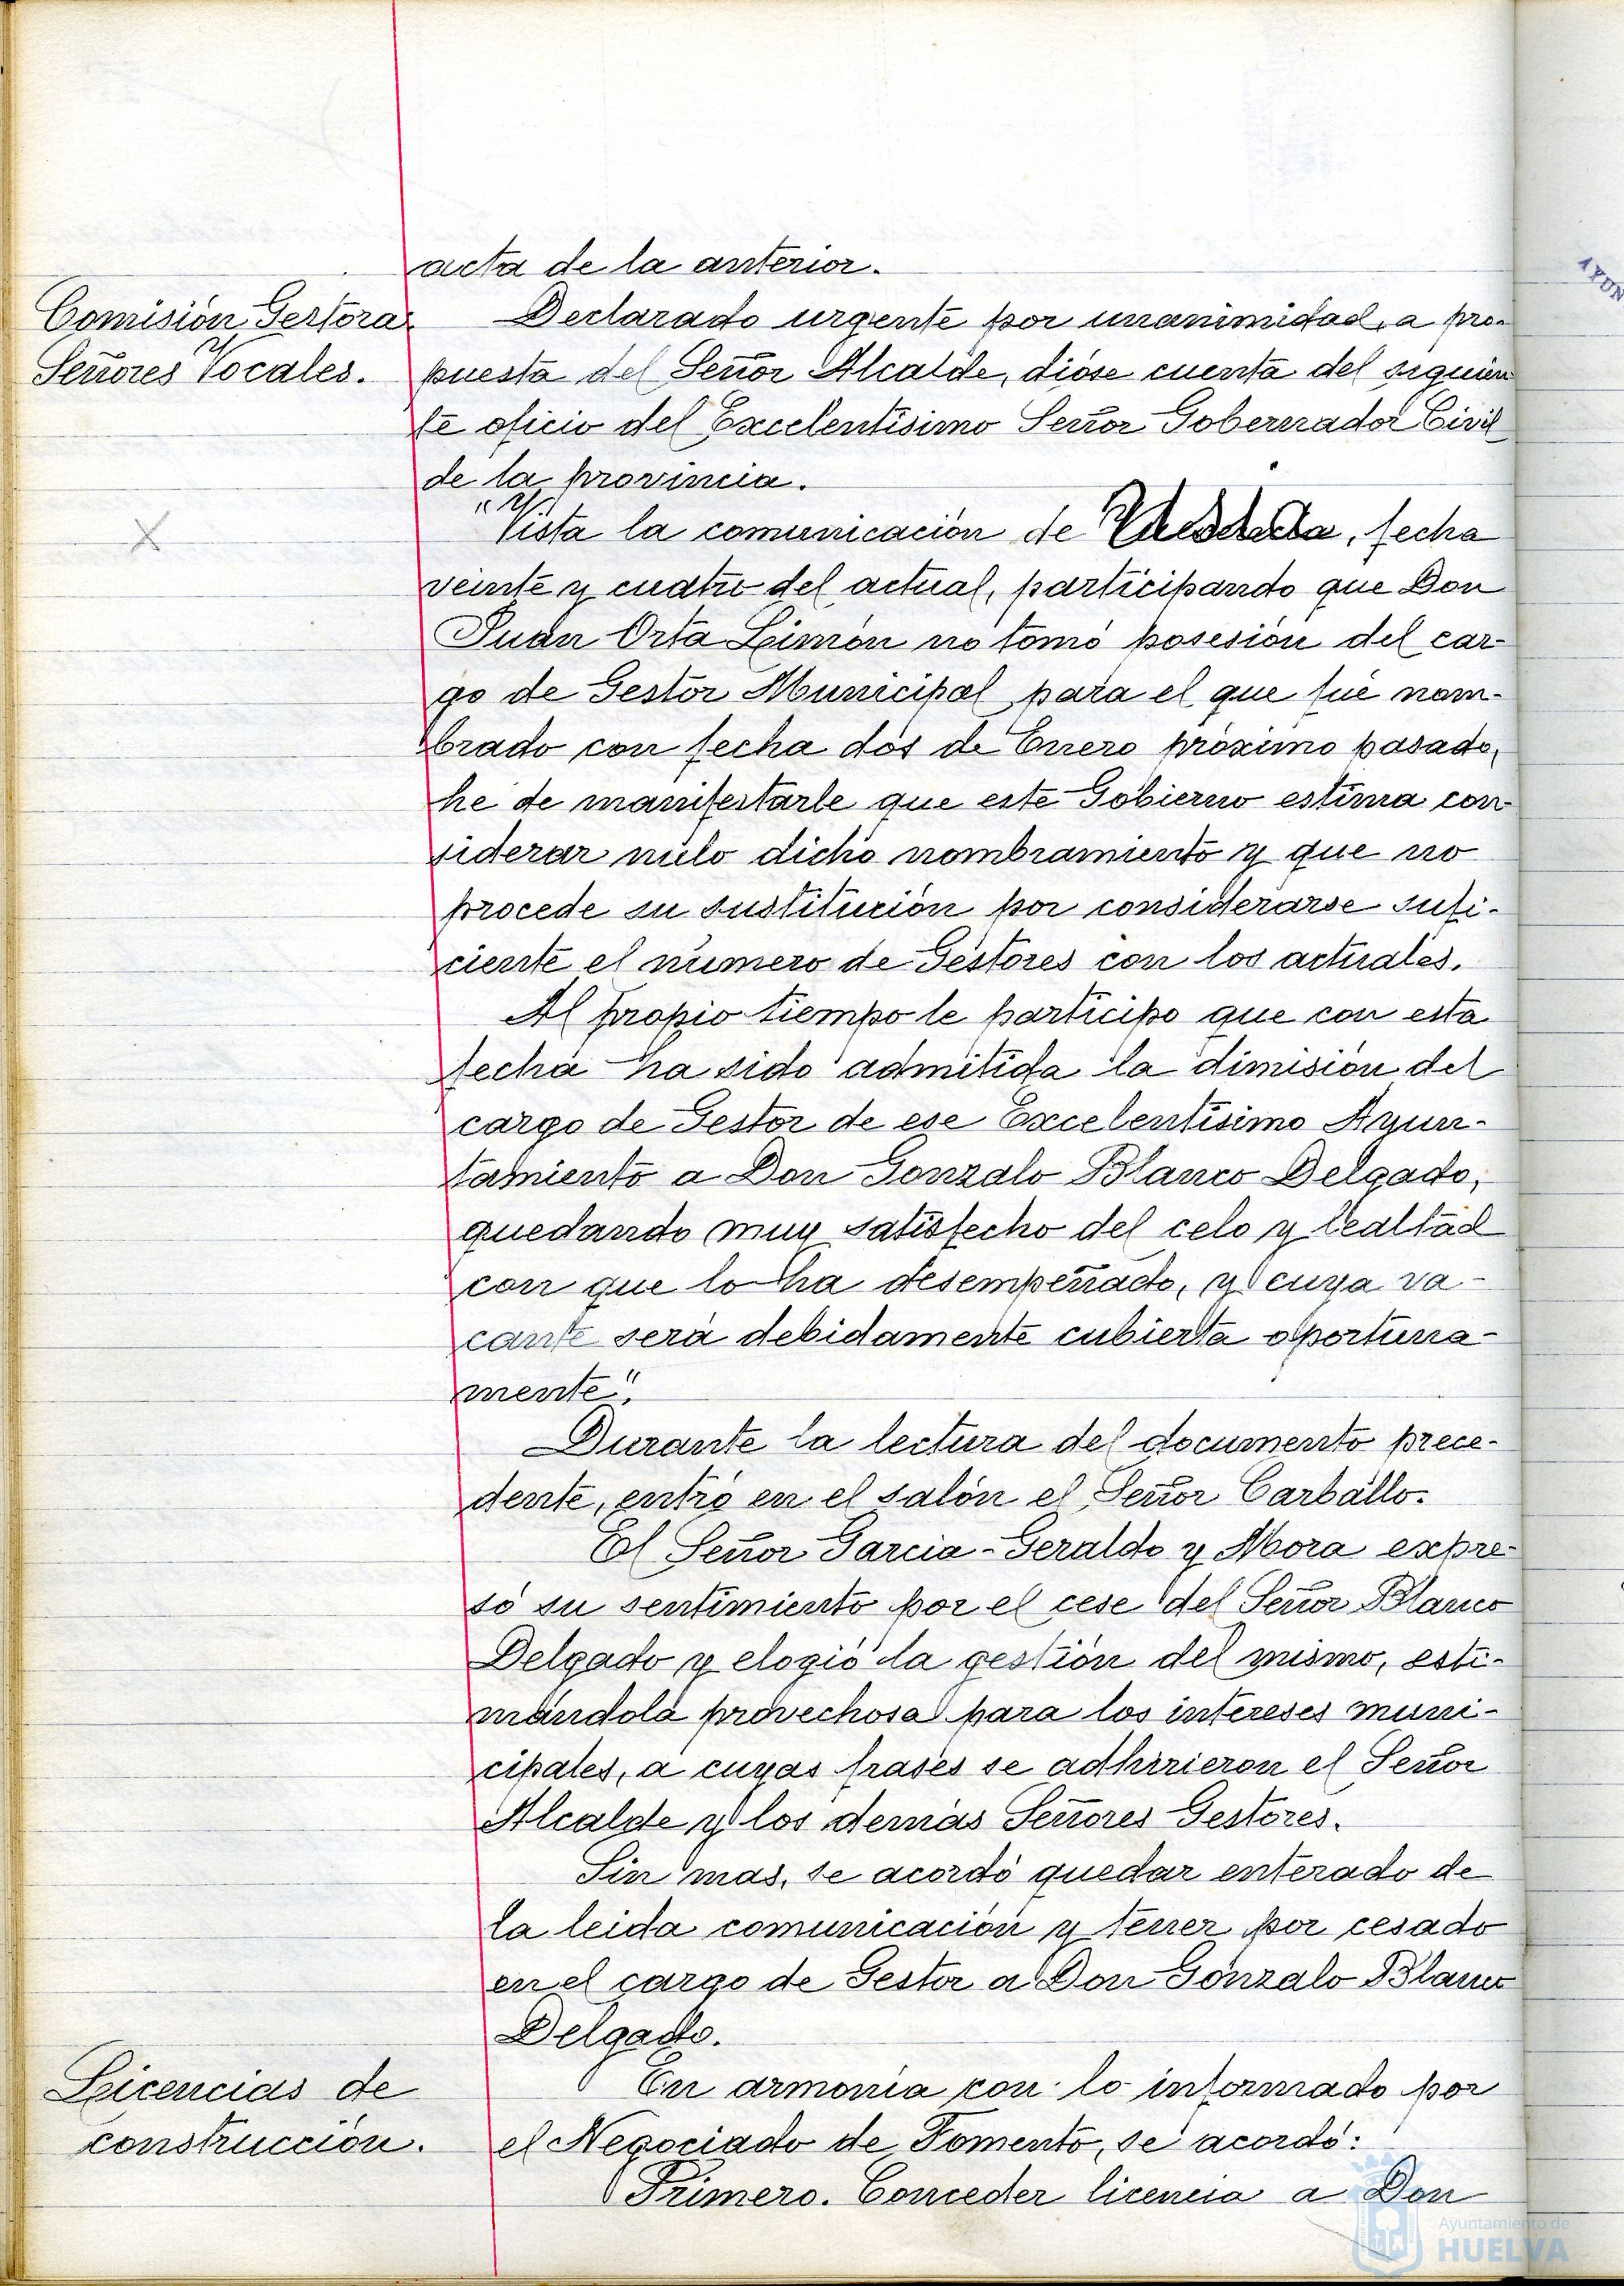 acta de la anterior.
Comisión Gestora
Señores Vocales.
Declarado urgente por unanimidad, a pro-
puesta del Señor Alcalde, dióse cuenta del siguien
te oficio del Excelentísimo Señor Gobernador Civil
de la provincia.
"Vista la comunicación de fecha
veinte y cuatro del actual, participando que Don
Juan Orta Limón no tomó posesión del car-
go de Gestor Municipal para el que fué nom-
brado con fecha dos de Enero próximo pasado,
he de manifestarle que este Gobierno estima con-
siderar nulo dicho nombramiento y que no
procede su sustitución por considerarse sufi-
ciente el número de Gestores con los actuales.
Al propio tiempo le participo que con esta
fecha ha sido admitida la dimisión del
cargo de Gestor de ese Excelentísimo Ayun-
tamiento a Don Gonzalo Blanco Delgado,
quedando muy satisfecho del celo y lealtad
con que lo ha desempeñado, y cuya va-
cante será debidamente cubierta oportuna-
mente".
Durante la lectura del documento prece-
dente, entró en el salón el Señor Carballo.
El Señor Garcia-Geraldo y Mora expre-
só su sentimiento por el cese del Señor Blanco
Delgado y elogió la gestión del mismo, esti-
mándola provechosa para los intereses muni-
cipales, a cuyas frases se adhirieron el Señor
Alcalde y los demás Señores Gestores.
Sin mas, se acordó quedar enterado de
la leida comunicación y tener por cesado
en el cargo de Gestor a Don Gonzalo Blanco
Delgado.
Licencias de
construcción.
En armonía con lo informado por
el Negociado de Fomento, se acordó:
Primero. Conceder licencia a Don
AYUN
Ayuntamiento de
HUELVA